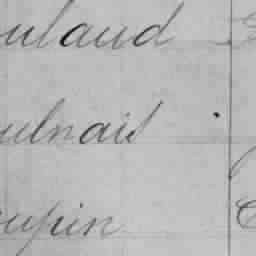 ulaud
ulnais
upin